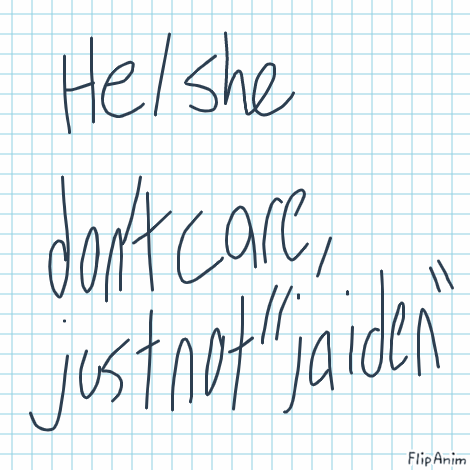 He/she
don't care,
just not "jaiden"
FlipAnim